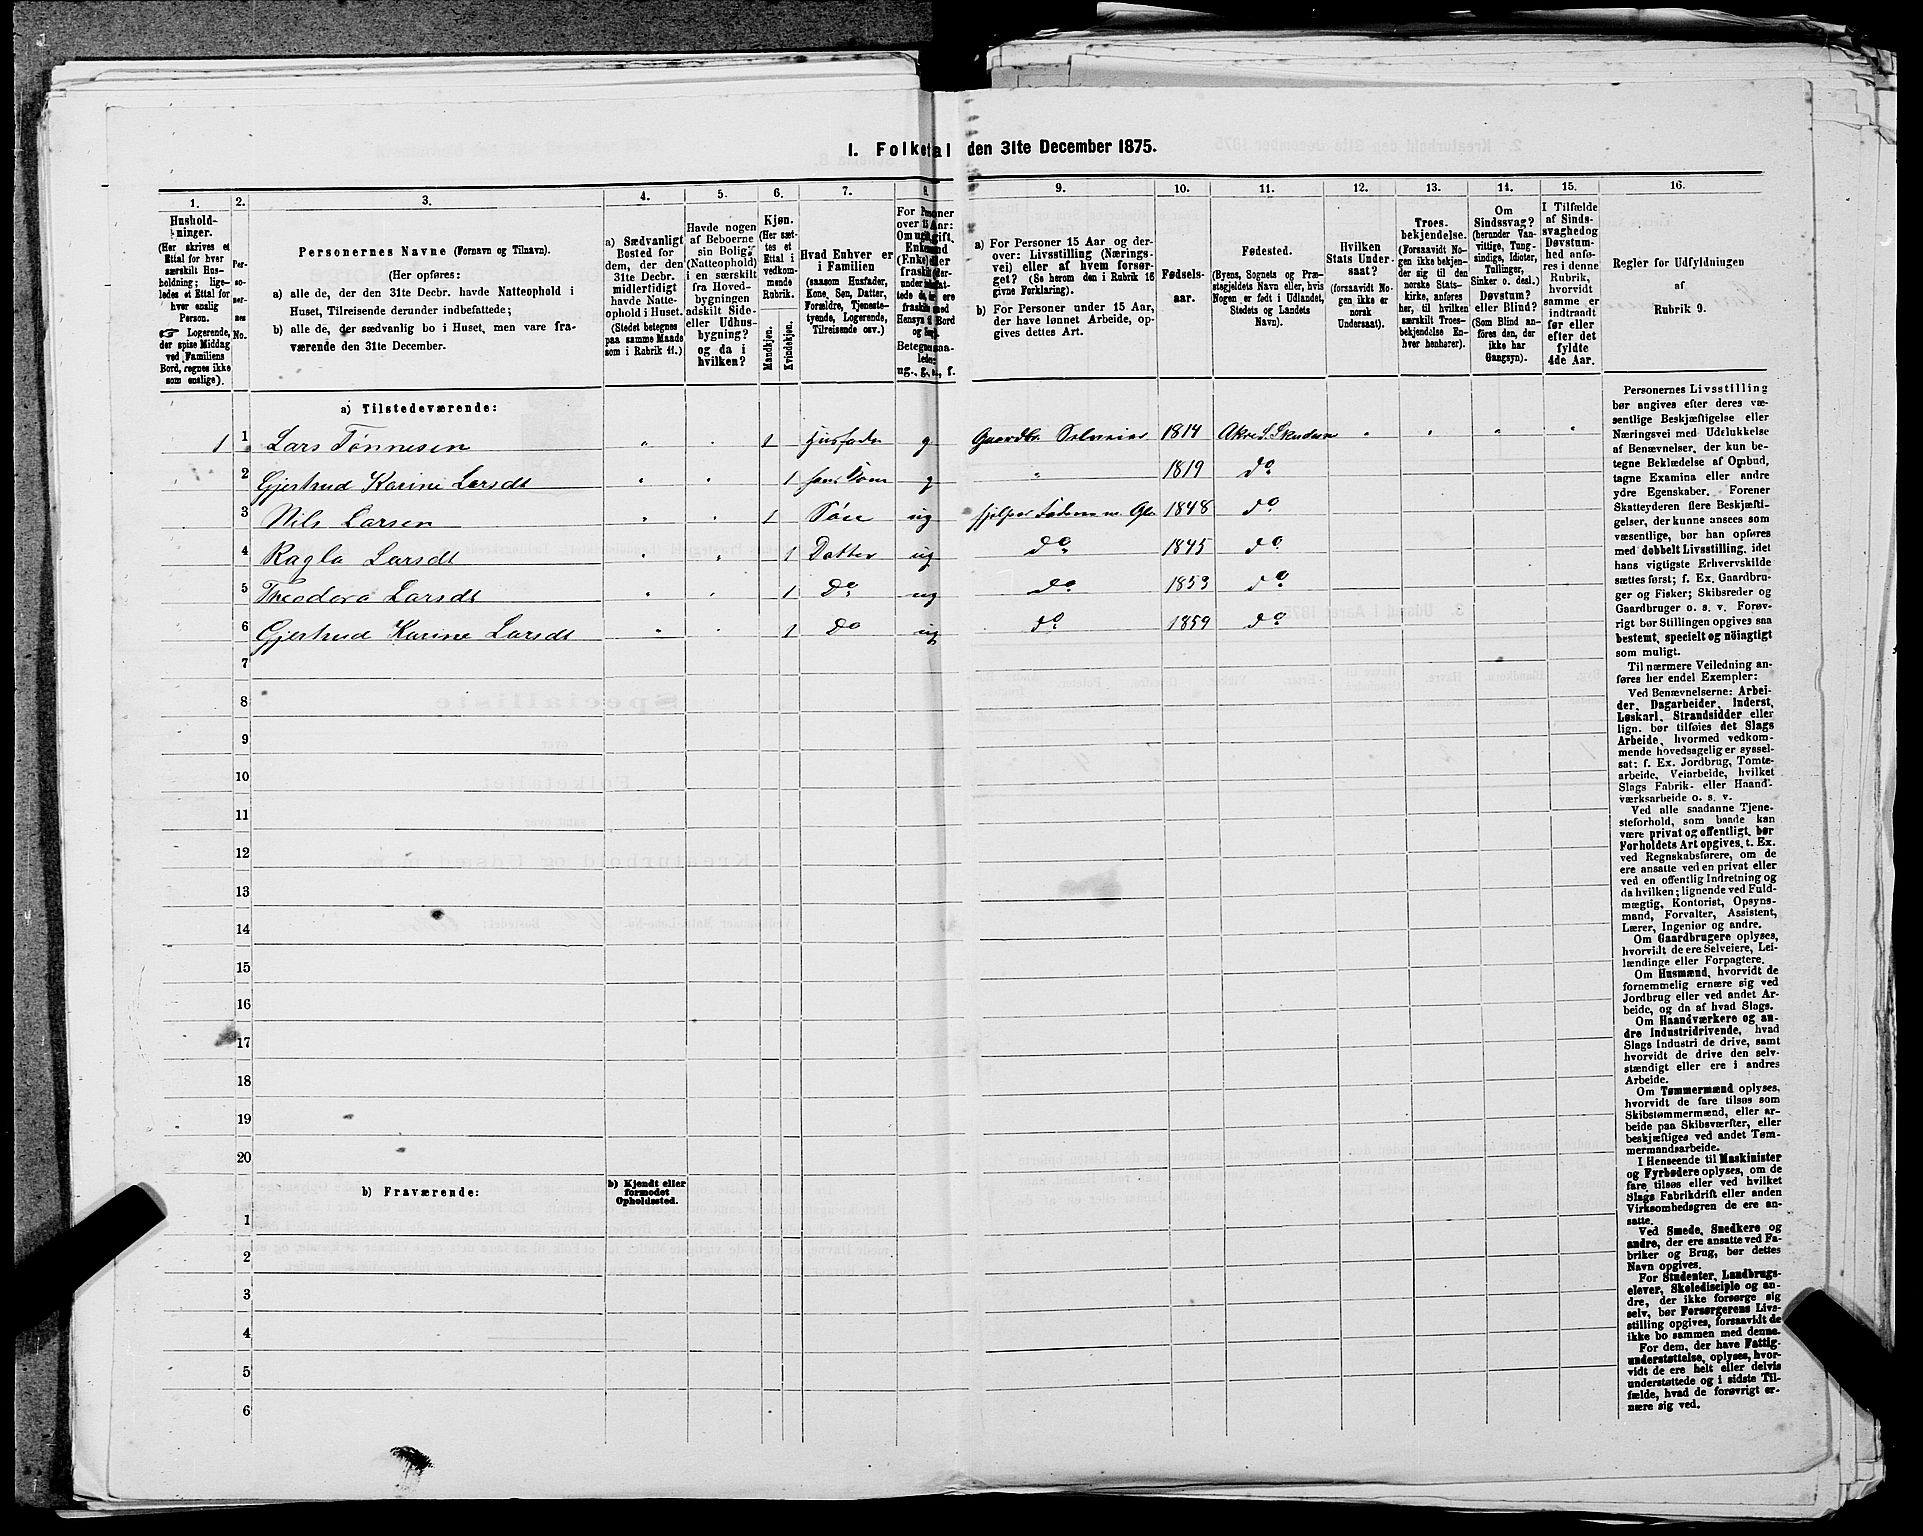 1. Folketal den 31te December 1875.
1. 2. 3. 4. 5. 6. 7. 8. 9. 10. 11. 12. 13. 14. 15. 16.
Hushold-
ninger.
(Her skrives et
Ettal for hver
særskilt Hus-
holdning; lige-
ledes et Ettal for
hver enslig
Person.
☞ Logerende,
der spise Middag
ved Familiens
Bord, regnes ikke
som enslige).
Per-
so-
ner-
nes
No.
Personernes Navne (Fornavn og Tilnavn).
(Her opføres:
a) alle de, der den 31te Decbr. havde Natteophold i
Huset, Tilreisende derunder indbefattede;
b) alle de, der sædvanlig bo i Huset, men vare fra-
værende den 31te December.
a) Sædvanligt
Bosted for
dem, der den
31te Decbr.
midlertidigt
havde Natte-
ophold i Huset.
(Stedet betegnes
paa samme Maade
som i Rubrik 11.)
Havde nogen
af Beboerne
sin Bolig
(Natteophold)
i en særskilt
fra Hoved-
bygningen
adskilt Side-
eller Udhus-
bygning?
og da i
hvilken?
Kjøn.
(Her sæt-
tes et
Ettal i
vedkom-
mende
Rubrik.
Mandkjøn.
Kvindekjøn.
Hvad Enhver er
i Familien
(saasom Husfader,
Kone, Søn, Datter,
Forældre, Tjeneste-
tyende, Logerende,
Tilreisende osv.)
For Personer
over 15 Aar:
Om ugift,
Enkemand
(Enke) eller
fraskilt
ug., g., e., f.
a) For Personer 15 Aar og der-
over: Livsstilling (Nærings-
vei) eller af hvem forsør-
get? (Se herom den i Rubrik 16
givne Forklaring).
b) For Personer under 15 Aar,
der have lønnet Arbeide, op-
gives dettes Art.
Fødsels-
aar.
Fødested.
(Byens, Sognets og Præ-
stegjeldets Navn eller, hvis
Nogen er født i Udlandet,
Stedets og Landets
Navn).
Hvilken
Stats Under-
saat?
(forsaavidt No-
gen ikke er
norsk
Undersaat).
Troes-
bekjendelse.
(Forsaavidt No-
gen ikke bekjen-
der sig til den
norske Stats-
kirke, anføres
her, til hvilken
særskilt Troes-
bekjendelse En-
hver henhører).
Om
Sindssvag?
(herunder Van-
vittige, Tung-
sindige, Idioter,
Tullinger,
Sinker o. desl.)
Døvstum?
eller Blind?
(Som Blind an-
føres den, der
ikke har
Gangsyn).
I Tilfælde
af Sinds-
svaghed og
Døvstum-
hed anfø-
res i denne
Rubrik,
hvorvidt
samme er
indtraadt
før eller
efter det
fyldte
4de Aar.
Regler for Udfyldningen
af
Rubrik 9.
a) Tilstedeværende:
1 1 Lars Tønnesen " " 1 Husfader g Gaardbr. Selveier 1814 Akre S. Skudesn " " " "
2 Gjertrud Karine Larsdt " " 1 hans Kone g " 1819 do
3 Nils Larsen " " 1 Søn ug hjelper Faderen m. 1848 do
4 Ragla Larsdt " " 1 Datter ug do 1845 do
5 Theodora Larsdt " " 1 Do ug do 1853 do
6 Gjertrud Karine Larsdt " " 1 Do ug do 1859 do
7
8
9
10
11
12
13
14
15
16
17
18
19
20
b) Fraværende:
b) Kjendt eller
formodet
Opholdssted.
1
2
3
4
5
6
Personernes Livsstilling
bør angives efter deres væ-
sentlige Beskjæftigelse eller
Næringsvei med Udelukkelse
af Benævnelser, der kun be-
tegne Beklædelse af Ombud,
tagne Examina eller andre
ydre Egenskaber. Forener
Skatteyderen flere Beskjæfti-
gelser, der kunne ansees som
væsentlige, bør han opføres
med dobbelt Livsstilling, idet
hans vigtigste Erhvervskilde
sættes først; f. Ex. Gaardbru-
ger og Fisker; Skibsreder og
Gaardbruger o. s. v. Forøv-
rigt bør Stillingen opgives saa
bestemt, specielt og nöiagtigt
som muligt.
Til nærmere Veiledning an-
føres her endel Exempler:
Ved Benævnelserne: Arbei-
der, Dagarbeider, Inderst,
Løskarl, Strandsidder eller
lign. bør tilføies det Slags
Arbeide, hvormed vedkom-
mende hovedsagelig er syssel-
sat; f. Ex. Jordbrug, Tomte-
arbeide, Veiarbeide, hvilket
Slags Fabrik- eller Haand-
værksarbeide o. s. v.
Ved alle saadanne Tjene-
steforhold, som baade kan
være privat og offentligt, bør
Forholdets Art opgives, t. Ex.
ved Regnskabsførere, om de
ere ansatte ved en privat eller
ved en offentlig Indretning og
da hvilken; lignende ved Fuld-
mægtig, Kontorist, Opsyns-
mand, Forvalter, Assistent,
Lærer, Ingeniør og andre.
Om Gaardbrugere oplyses,
hvorvidt de ere Selveiere, Lei-
lændinge eller Forpagtere.
Om Husmænd, hvorvidt de
fornemmelig ernære sig ved
Jordbrug eller ved andet Ar-
beide, og da af hvad Slags.
Om Haandværkere og an-
dre Industridrivende, hvad
Slags Industri de drive, samt
hvorvidt de drive den selv-
stændigt eller ere i andres
Arbeide.
Om Tømmermænd oplyses,
hvorvidt de fare tilsøs som
Skibstømmermænd, eller ar-
beide paa Skibsværfter, eller
beskjæftiges ved andet Tøm-
mermandsarbeide.
I Henseende til Maskinister
og Fyrbødere oplyses, om de
fare tilsøs eller ved hvilket
Slags Fabrikdrift eller anden
Virksomhedsgren de ere an-
satte.
Ved Smede, Snedkere og
andre, der ere ansatte ved Fa-
briker og Brug, bør dettes
Navn opgives.
For Studenter, Landbrugs-
elever, Skoledisciple og an-
dre, der ikke forsørge sig
selv, bør Forsørgerens Livs-
stilling opgives, forsaavidt de
ikke bo sammen med denne.
For dem, der have Fattig-
understøttelse, oplyses, hvor-
vidt de ere helt eller delvis
understøttede og i sidste Til-
fælde, hvad de forøvrigt er-
nære sig ved.